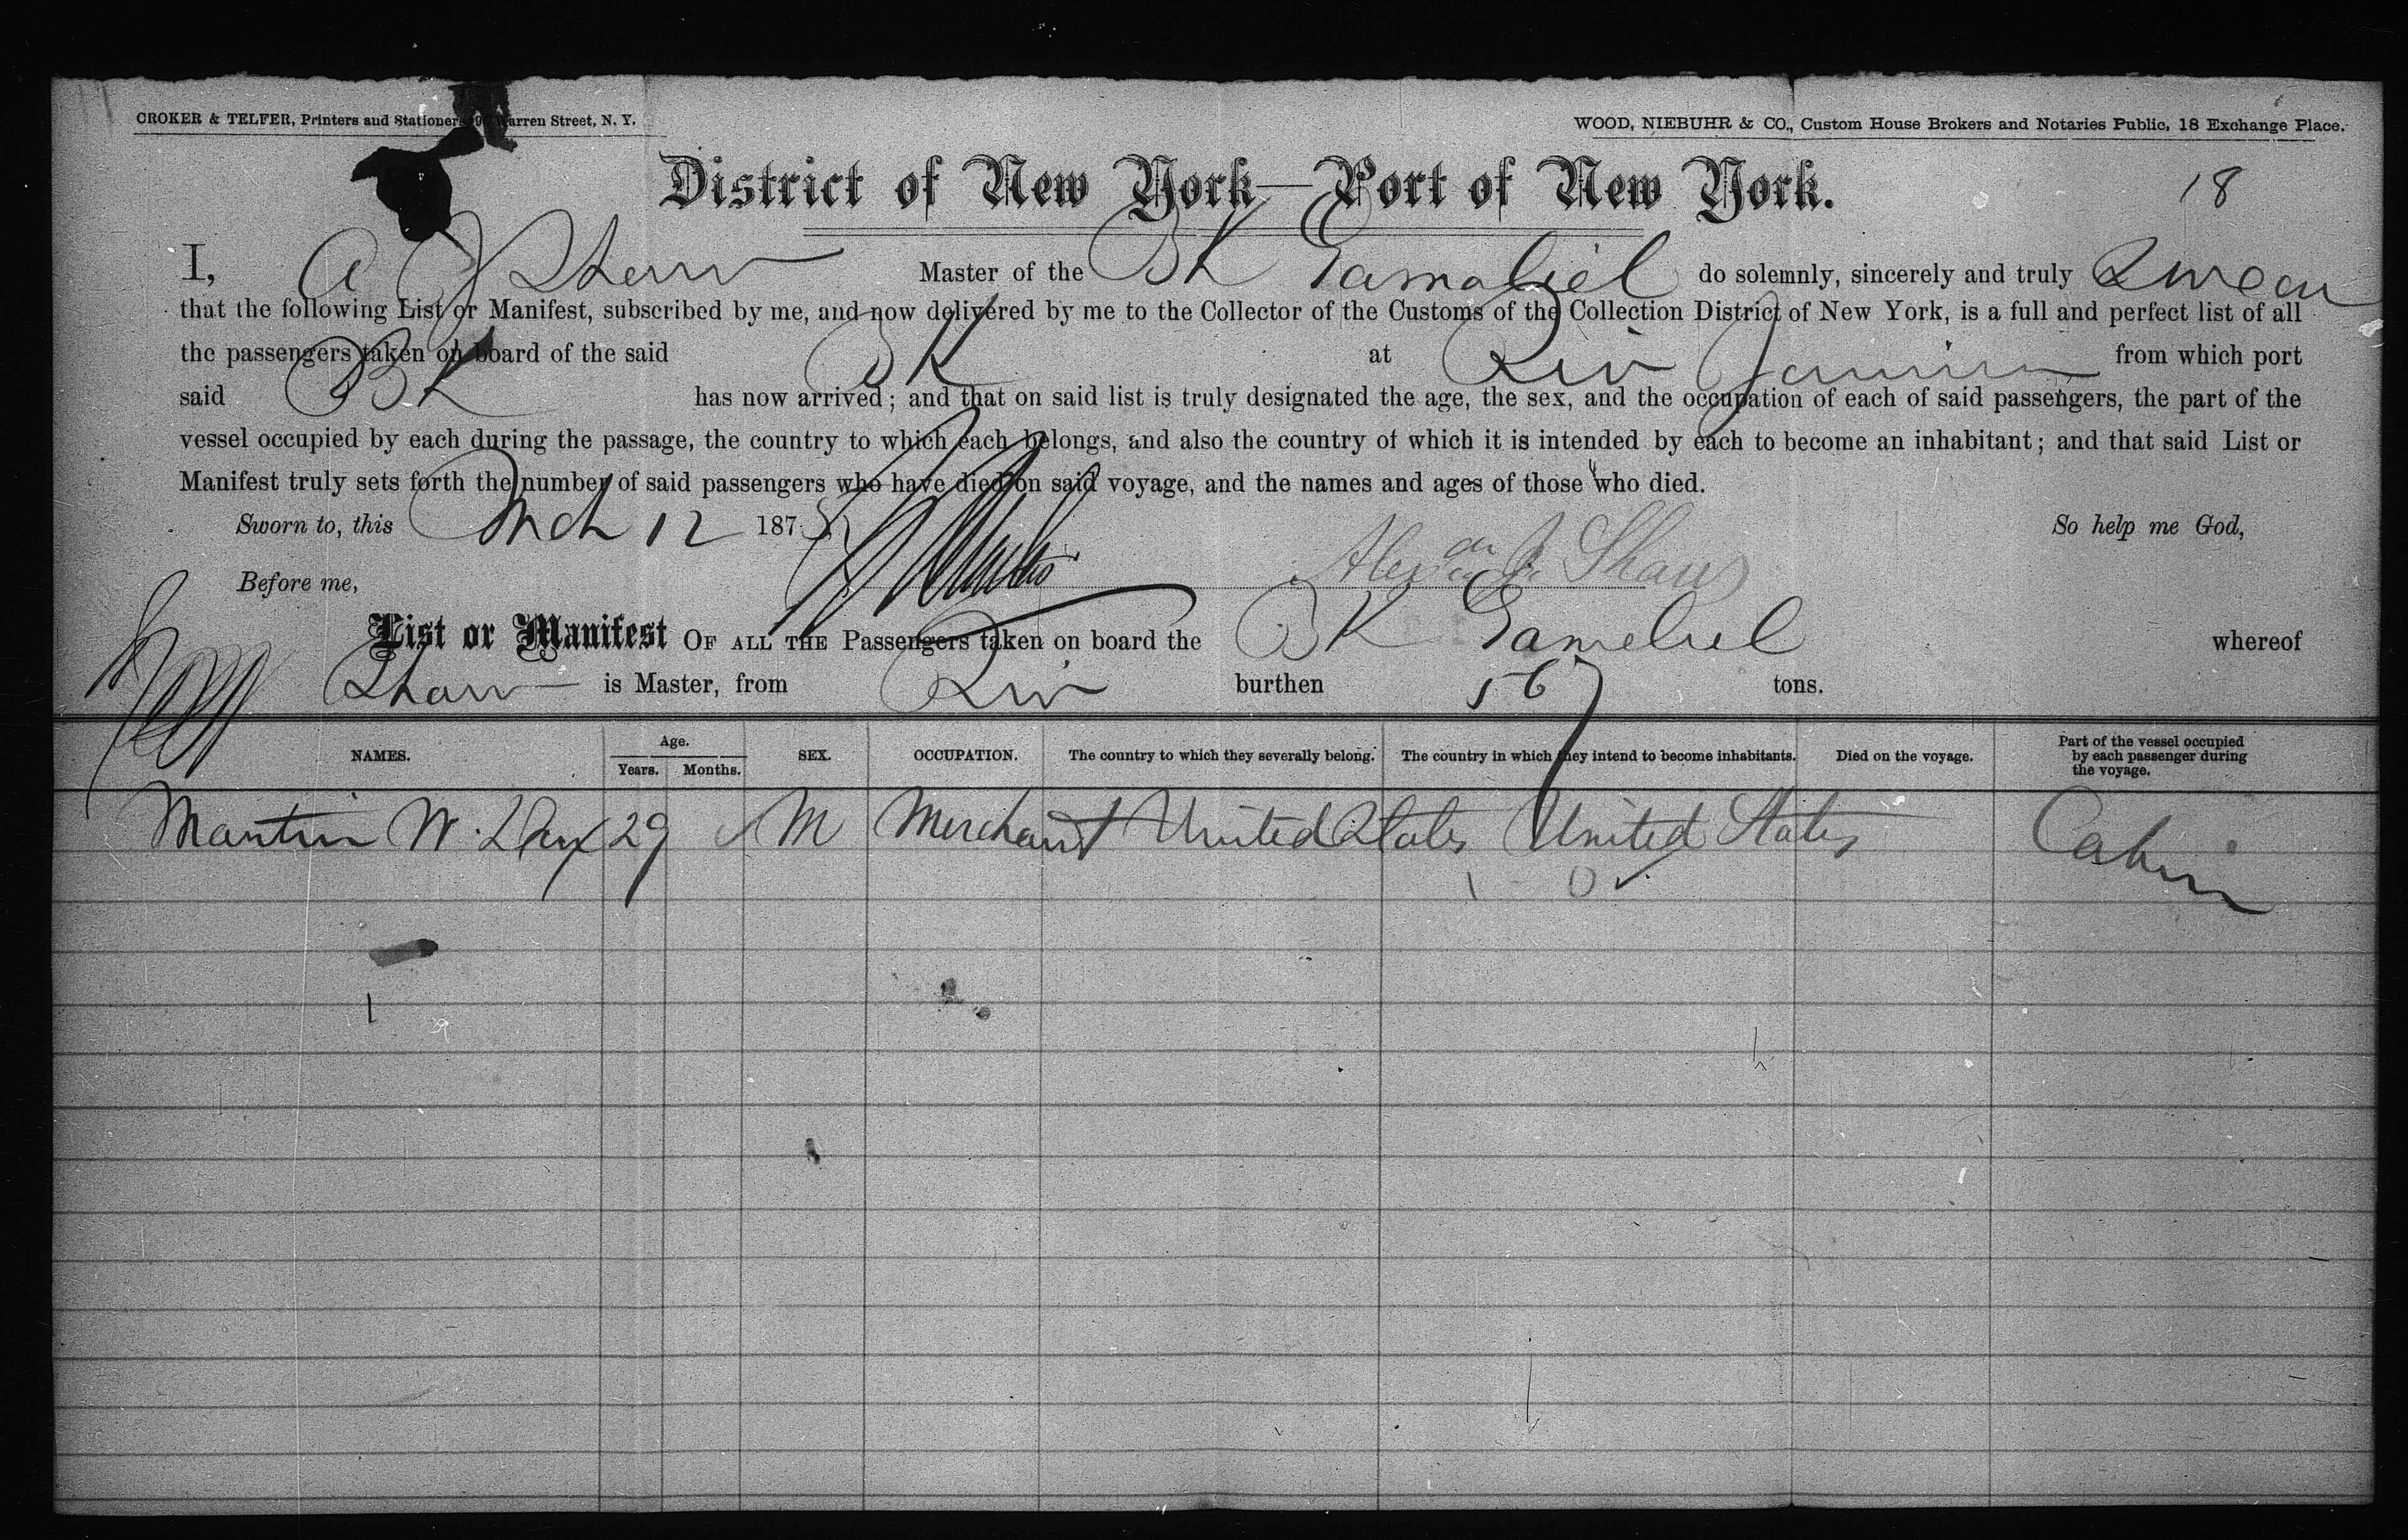 CROKER & TELFER, Printers and Stationers, Warren Street, N. Y.
WOOD, NIEBUHR & CO., Custom House Brokers and Notaries Public, 18 Exchange Place.
District of New York—Port of New York.
18
I, A J Shaw Master of the BK Gamaliel do solemnly, sincerely and truly Swear
that the following List or Manifest, subscribed by me, and now delivered by me to the Collector of the Customs of the Collection District of New York, is a full and perfect list of all
the passengers taken on board of the said BK at Rio Janeiro from which port
said BK has now arrived; and that on said list is truly designated the age, the sex, and the occupation of each of said passengers, the part of the
vessel occupied by each during the passage, the country to which each belongs, and also the country of which it is intended by each to become an inhabitant; and that said List or
Manifest truly sets forth the number of said passengers who have died on said voyage, and the names and ages of those who died.
Sworn to, this Mch 12 187
So help me God,
Before me,
Shaw
List or Manifest OF ALL THE Passengers taken on board the BK Gameliel whereof
Shaw is Master, from Rio burthen 567 tons.
NAMES. Age. Years. Months. SEX. OCCUPATION. The country to which they severally belong. The country in which they intend to become inhabitants. Died on the voyage. Part of the vessel occupied by each passenger during the voyage.
Martin W. 29 M Merchant United States United States Cabin
1 0
1